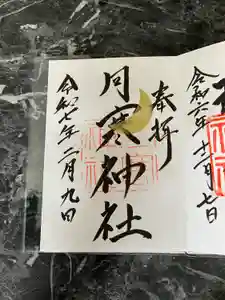 奉拝
月寒神社
令和七年二月九日
令和六年十二月七日